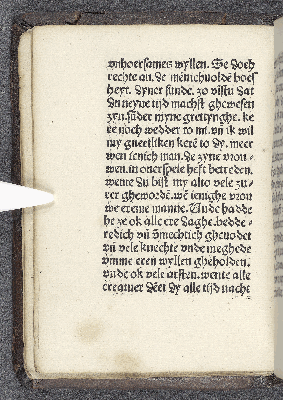 vnhoersames wyllen. Se doch
rechte an. de menichuolde boes
heyt. dyner sunde. zo bistu dat
du neywe tijd machst ghewesen
zyn. sūder myne grettynghe. ke
re noch wedder to mi. vn̄ ik wil
my guetliken kerē to dy. meer
wen ienich man. de zyne vrou-
wen. in ouerspele heft betreden.
wente du bist my alto vele zu-
rer ghewordē. wē ienighe vrou
we ereme manne. Unde hadde
he ze ok alle ere daghe. bedde-
redich vn̄ vmechtich gheuodet
vn̄ vele knechte vnde meghede
vmme eren wyllen gheholden.
vnde ok vele arsten. wente alle
creatuer dēet dy alle tijd nacht